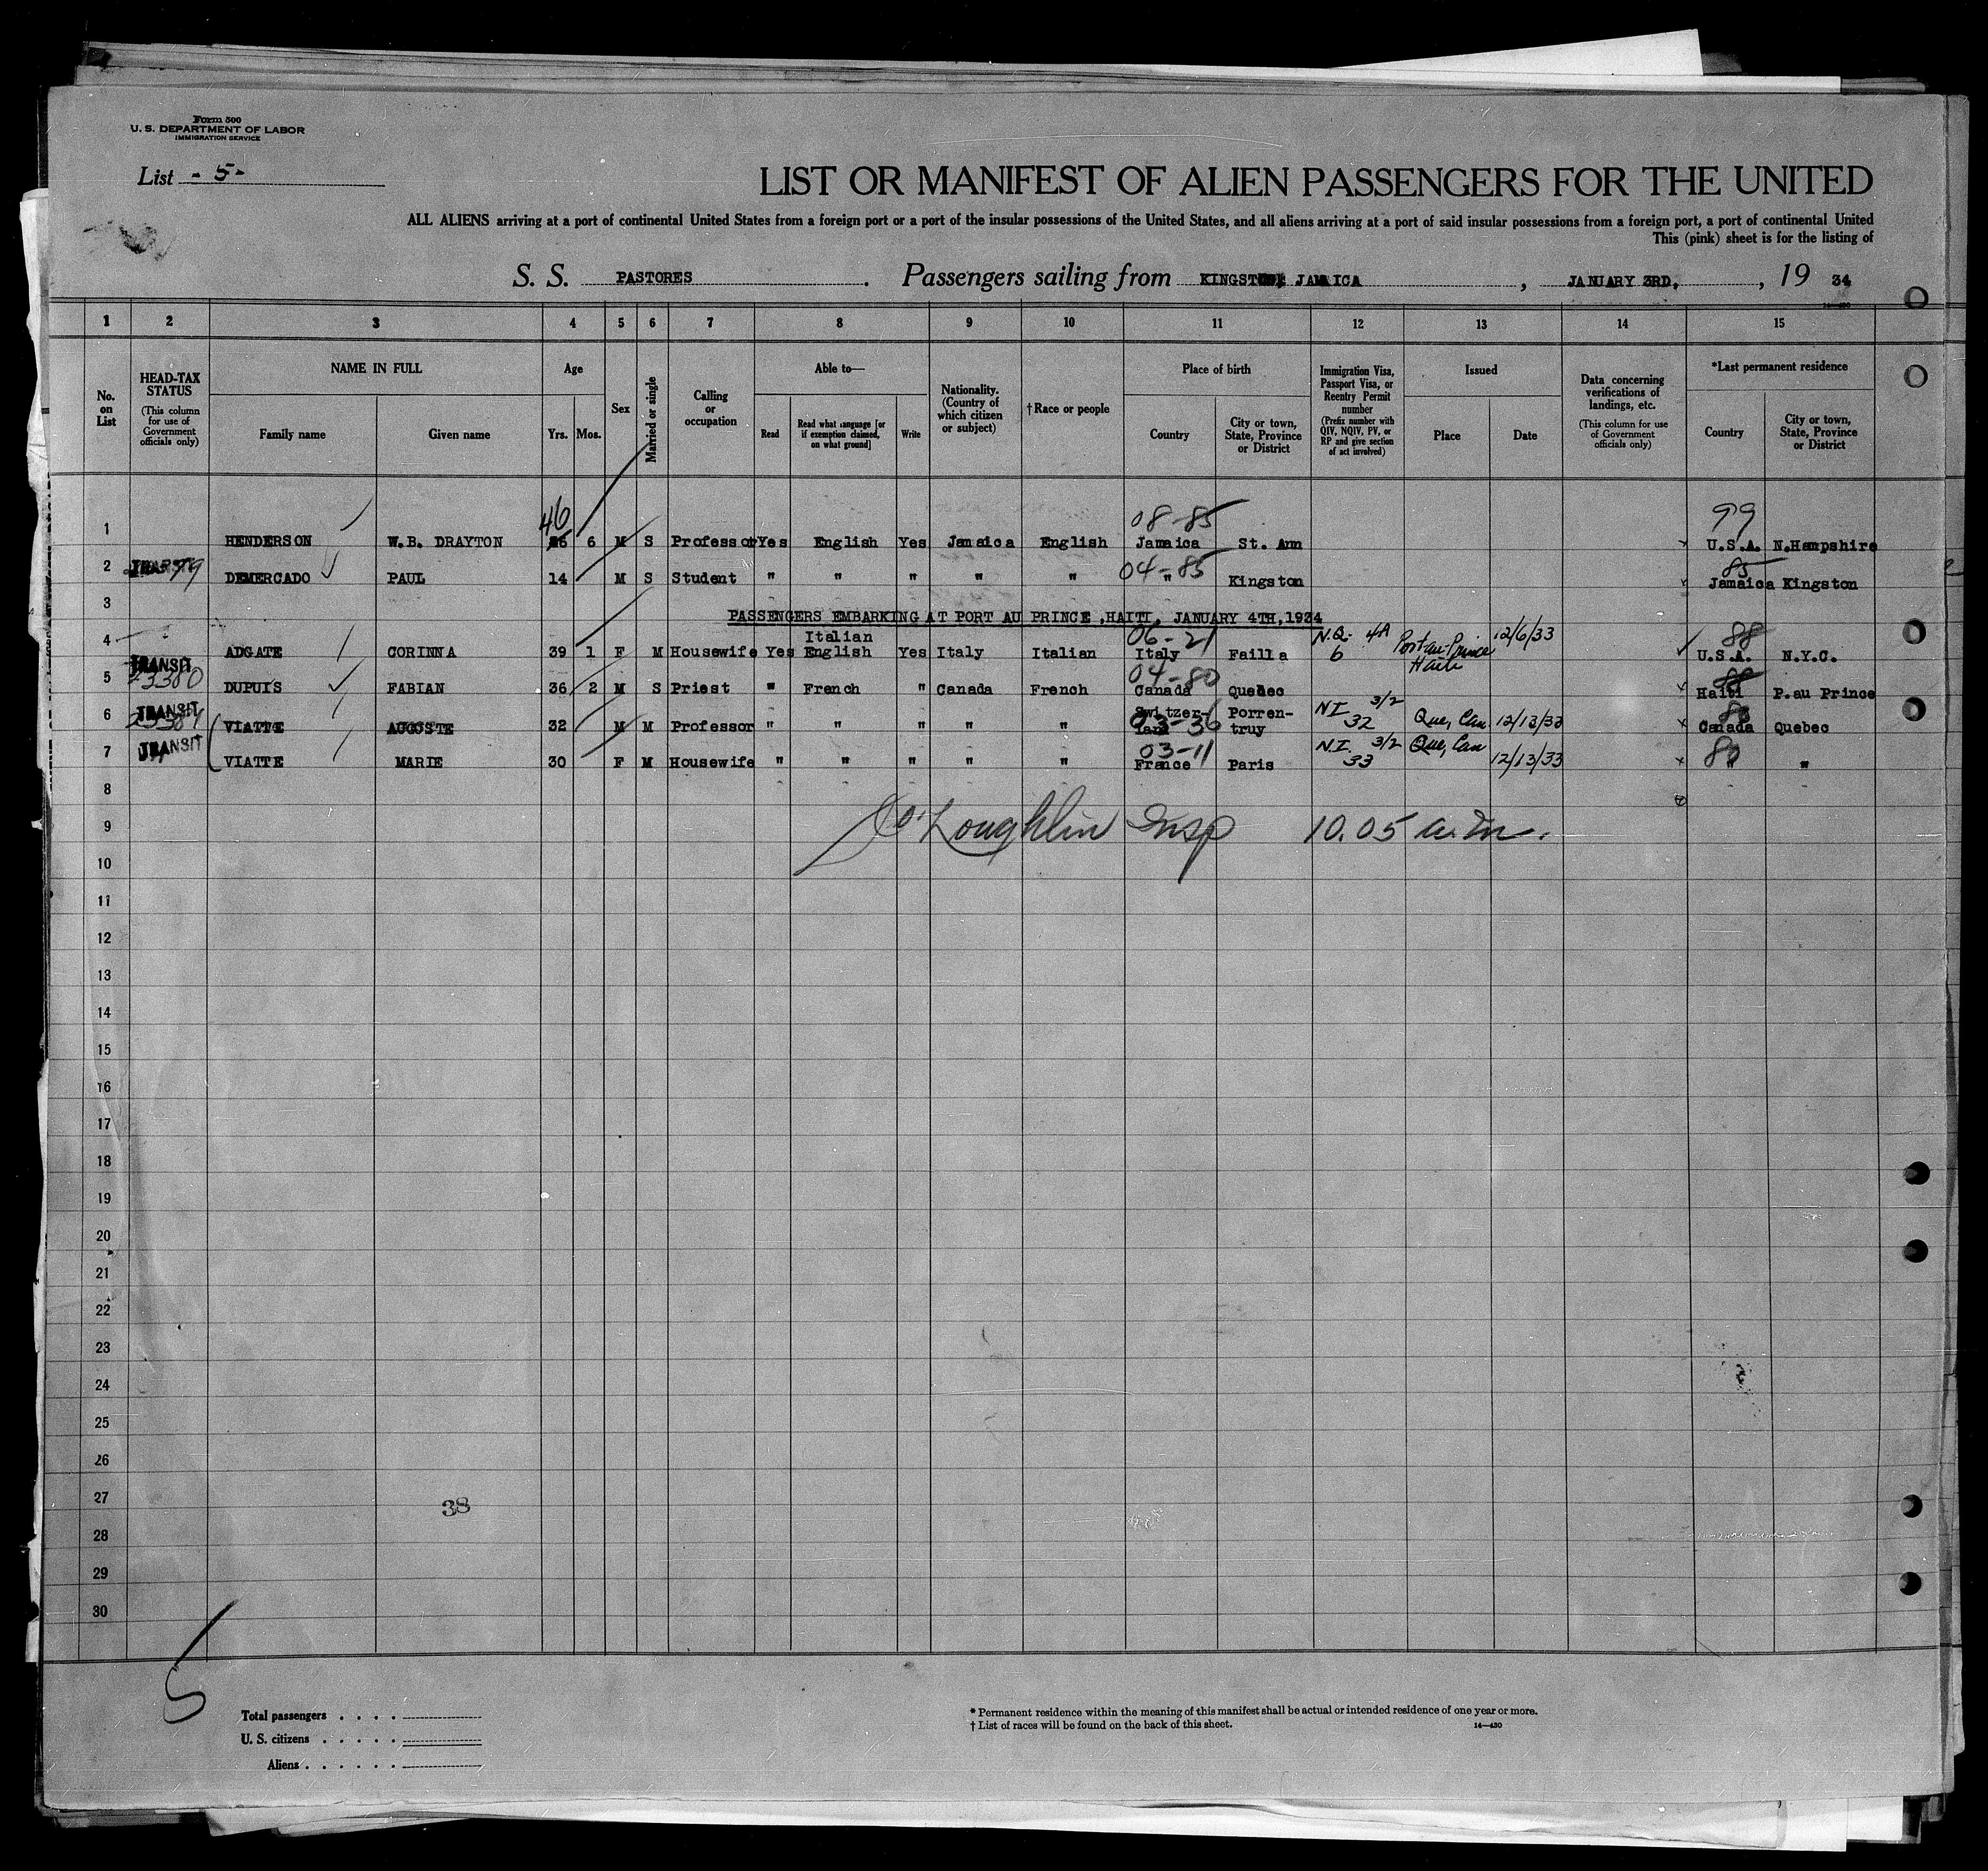 Form 500
U. S. DEPARTMENT OF LABOR
IMMIGRATION SERVICE
List - 5 -
LIST OR MANIFEST OF ALIEN PASSENGERS FOR THE UNITED
ALL ALIENS arriving at a port of continental United States from a foreign port or a port of the insular possessions of the United States, and all aliens arriving at a port of said insular possessions from a foreign port, a port of continental United
This (pink) sheet is for the listing of
S. S. PASTORES. Passengers sailing from KINGSTON JAMAICA, JANUARY 3RD, , 19 34
1 2 3 4 5 6 7 8 9 10 11 12 13 14 15
No. on List
HEAD-TAX STATUS
(This column for use of Government officials only)
NAME IN FULL
Family name Given name
Age
Yrs. Mos.
Sex
Married or single
Calling or occupation
Able to—
Read
Read what language [or if exemption claimed, on what ground]
Write
Nationality. (Country of which citizen or subject)
†Race or people
Place of birth
Country
City or town, State, Province or District
Immigration Visa, Passport Visa, or Reentry Permit number
(Prefix number with QIV, NQIV, PV, or RP and give section of act involved)
Issued
Place Date
Data concerning verifications of landings, etc.
(This column for use of Government officials only)
*Last permanent residence
Country
City or town, State, Province or District
46 08-85 99
1 HENDERSON W.B. DRAYTON 6 M S Professor Yes English Yes Jamaica English Jamaica St. Ann U.S.A. N.Hampshire
04-85 85
2 DEMERCADO PAUL 14 M S Student " " " " " " Kingston Jamaica Kingston
3 PASSENGERS EMBARKING AT PORT AU PRINCE ,HAITI, JANUARY 4TH,1934
Italian 06-21 N.Q. 4A Port-au-Prince 12/6/33 88
4 ADGATE CORINNA 39 1 F M Housewife Yes English Yes Italy Italian Italy Failla 6 Haiti U.S.A. N.Y.C.
TRANSIT 04-80 88
5 DUPUIS FABIAN 36 2 M S Priest " French " Canada French Canada Quebec Haiti P.au Prince
TRANSIT Switzer- Porren- N I 3/2 80
6 VIATTE AUGOSTE 32 M M Professor " " " " " land 03-36 truy 32 Que, Can 12/13/33 Canada Quebec
TRANSIT 03-11 N I. 3/2 Que, Can 80
7 VIATTE MARIE 30 F M Housewife " " " " " France Paris 33 12/13/33 " "
8
9 O'Loughlin Insp 10.05 a.m.
10
11
12
13
14
15
16
17
18
19
20
21
22
23
24
25
26
27 38
28
29
30
5
Total passengers . . . .
U. S. citizens . . . . .
Aliens . . . . . .
* Permanent residence within the meaning of this manifest shall be actual or intended residence of one year or more.
† List of races will be found on the back of this sheet. 14—430